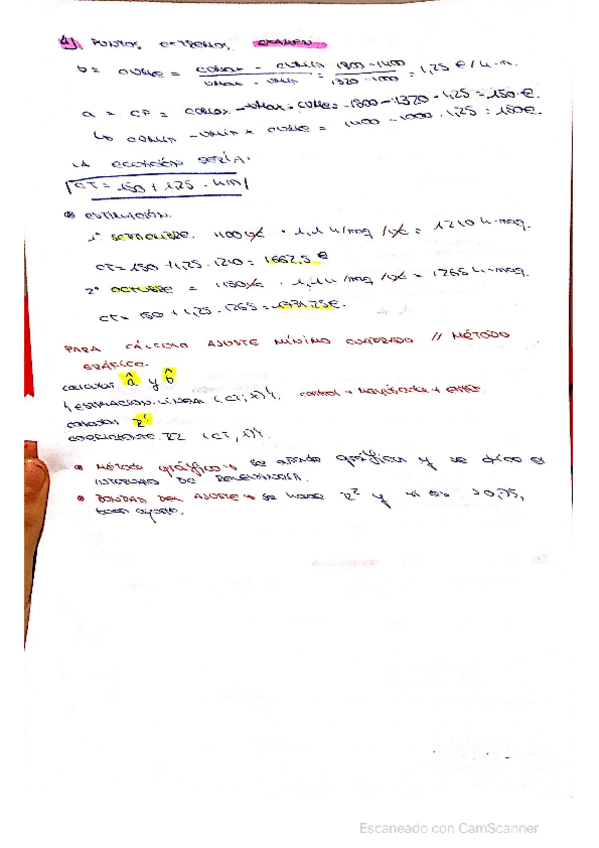 4) PUNTOS EXTREMOS. EXAMEN
b = CVMe = (COMAX - COMIN) / (VMAX - VMIN) = (1800 - 1400) / (1320 - 1000) = 1,25 € / h-m.
a = CF = COMAX - VMAX · CVMe = 1800 - 1320 · 1,25 = 150 €.
↳ COMIN - VMIN × CVMe = 1400 - 1000 · 1,25 = 150 €.
LA ECUACIÓN SERÍA:
CT = 150 + 1,25 · hm
ESTIMACIÓN.
1º SEPTIEMBRE. 1100 · 1,1 h/maq / = 1210 h-maq.
CT = 150 + 1,25 · 1210 = 1662,5 €
2º OCTUBRE = 1150 · 1,1 h/maq / = 1265 h-maq.
CT = 150 + 1,25 · 1265 = 1731,25 €.
PARA CÁLCULO AJUSTE MÍNIMO CUADRADO // MÉTODO
GRÁFICO.
calcular â y b̂
{ESTIMACION.LINEAL (CT, X)}. control + Mayúscula + enter
calcular R²
COEFICIENTE.R2 (CT, X)}.
• Método gráfico → se gráfica y se
INTERVALO DE RELEVANCIA.
• BONDAD DEL AJUSTE → Se hace R² y si es > 0,75,
buen ajuste.
Escaneado con CamScanner